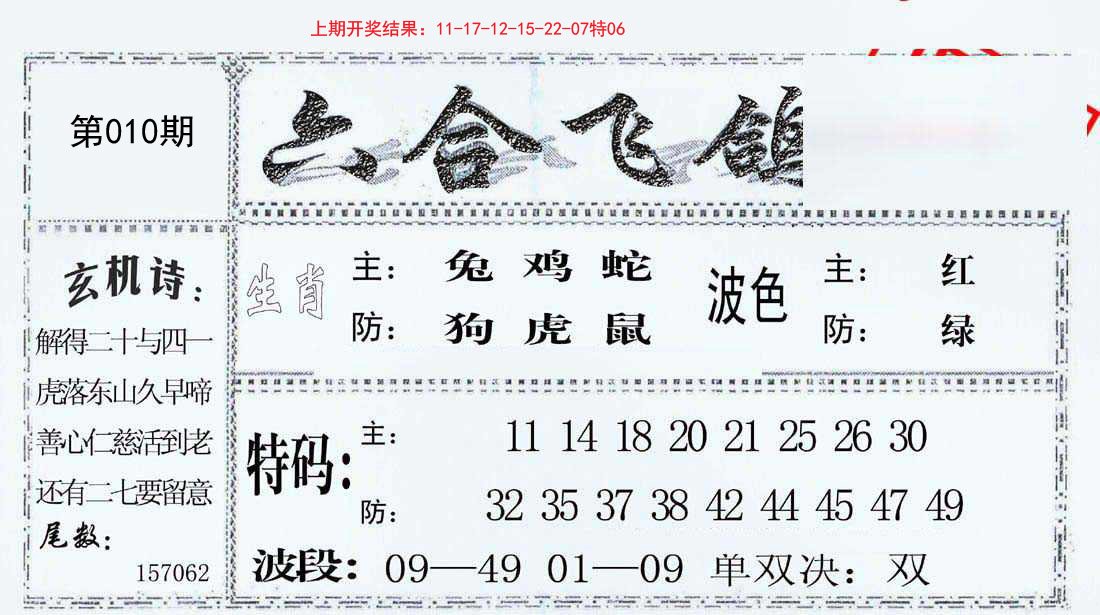 上期开奖结果：11-17-12-15-22-07特06
第010期
六合飞鸽
玄机诗：
解得二十与四一
虎落东山久早啼
善心仁慈活到老
还有二七要留意
尾数：
157062
生肖
主： 兔 鸡 蛇
防： 狗 虎 鼠
波色
主： 红
防： 绿
特码：
主： 11 14 18 20 21 25 26 30
防： 32 35 37 38 42 44 45 47 49
波段： 09—49 01—09 单双决： 双